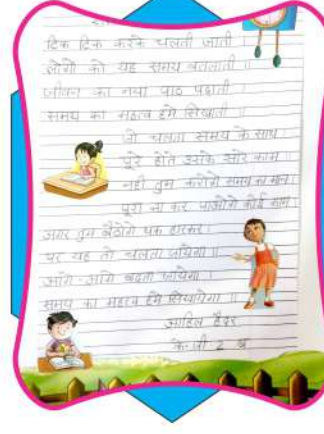 टिक टिक करके चलती जाती ।
लोगो को यह समय बतलाती ॥
जीवन का नया पाठ पढ़ाती ।
समय का महत्व हमे सिखाती ॥
जो चलता समय के साथ ।
पूरे होते उसके सारे काम ॥
नही तुम करोगे समय का मान ।
पूरा ना कर पाओगे कोई काम ।
अगर तुम बैठोगे थक हारकर ।
पर यह तो चलता जायेगा ॥
आगे - आगे बढ़ता जायेगा ।
समय का महत्व हमे सिखायेगा ॥
आहिल हैदर
के.जी. 2 ब